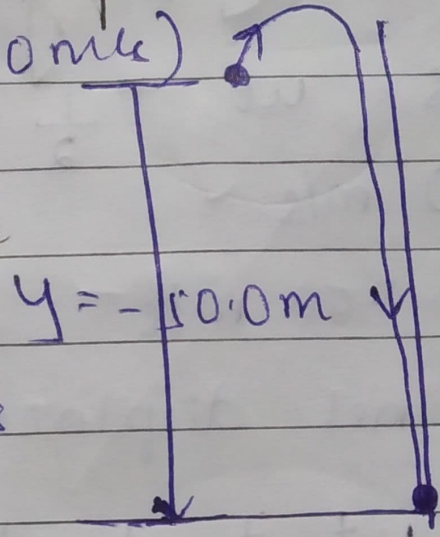 0 m/s)
y = - 50.0m